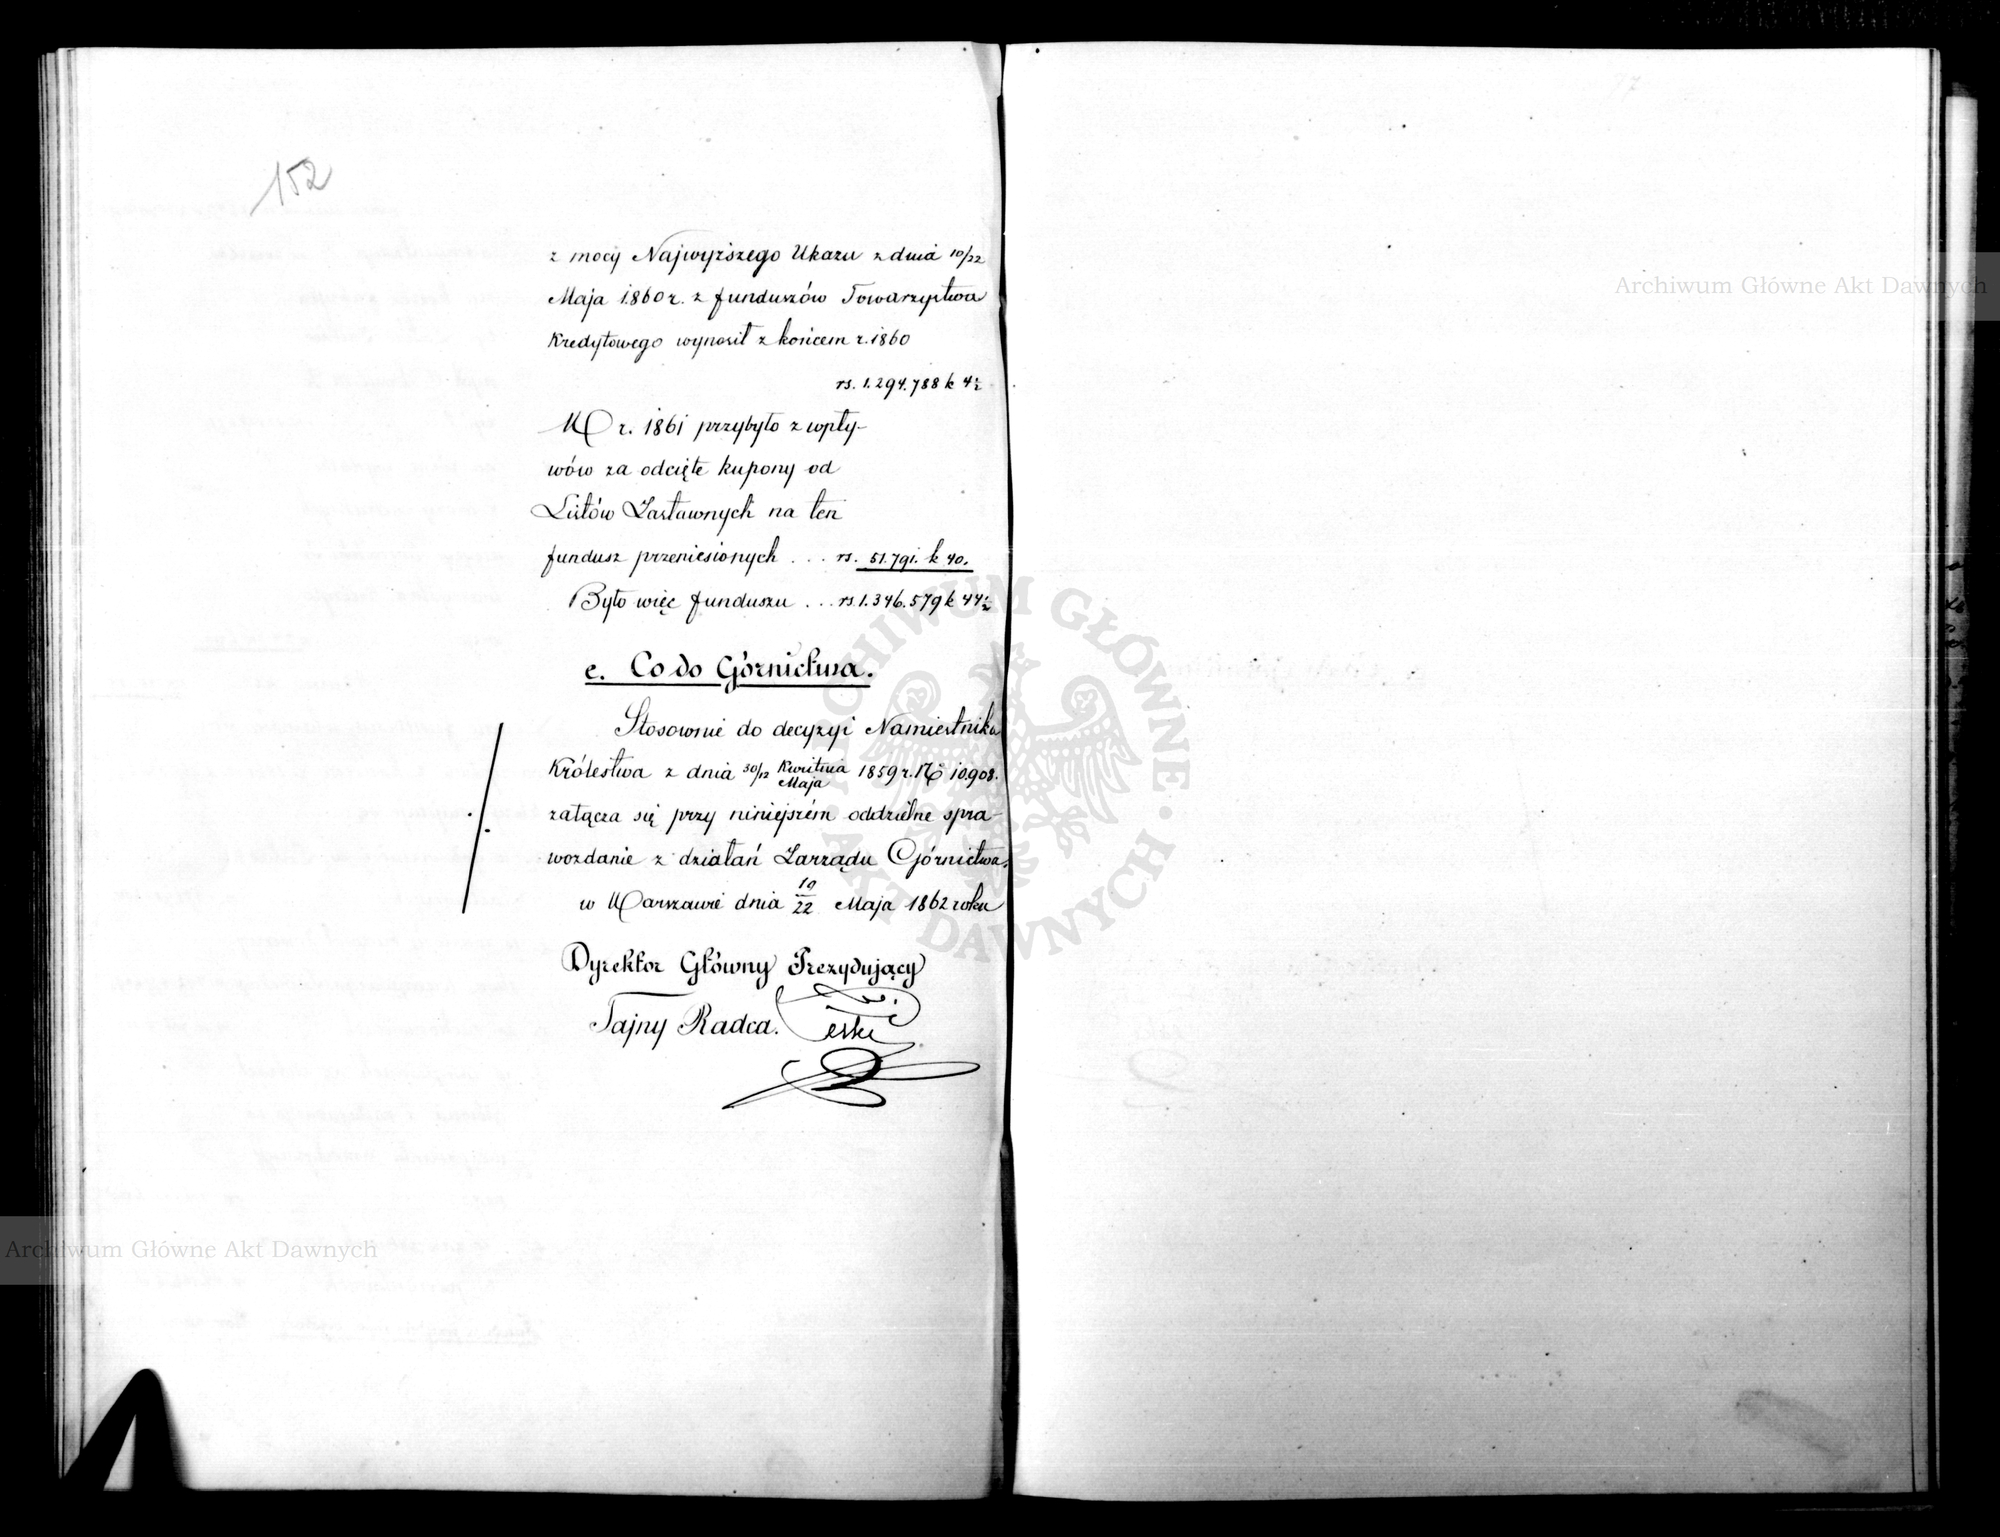 152
z mocy Najwyższego Ukazu z dnia 10/22
Maja 1860 r. z funduszów Towarzystwa
Kredytowego wynosił z końcem r. 1860
rs. 1.294.788 k 4½
W r. 1861 przybyło z wpły-
wów za odcięte kupony od
Listów Zastawnych na ten
fundusz przeniesionych . . . rs. 51.791. k 40.
Było więc funduszu . . . rs. 1.346.579 k 44½
c. Co do Górnictwa.
Stosownie do decyzyi Namiestnika
Królestwa z dnia 30/12 Kwietnia/Maja 1859 r. № 10.908.
załącza się przy niniejszém oddzielne spra-
wozdanie z działań Zarządu Górnictwa.
w Warszawie dnia 10/22 Maja 1862 roku
Dyrektor Główny Prezydujący
Tajny Radca.
Archiwum Główne Akt Dawnych
Archiwum Główne Akt Dawnych
ARCHIWUM GŁÓWNE AKT DAWNYCH